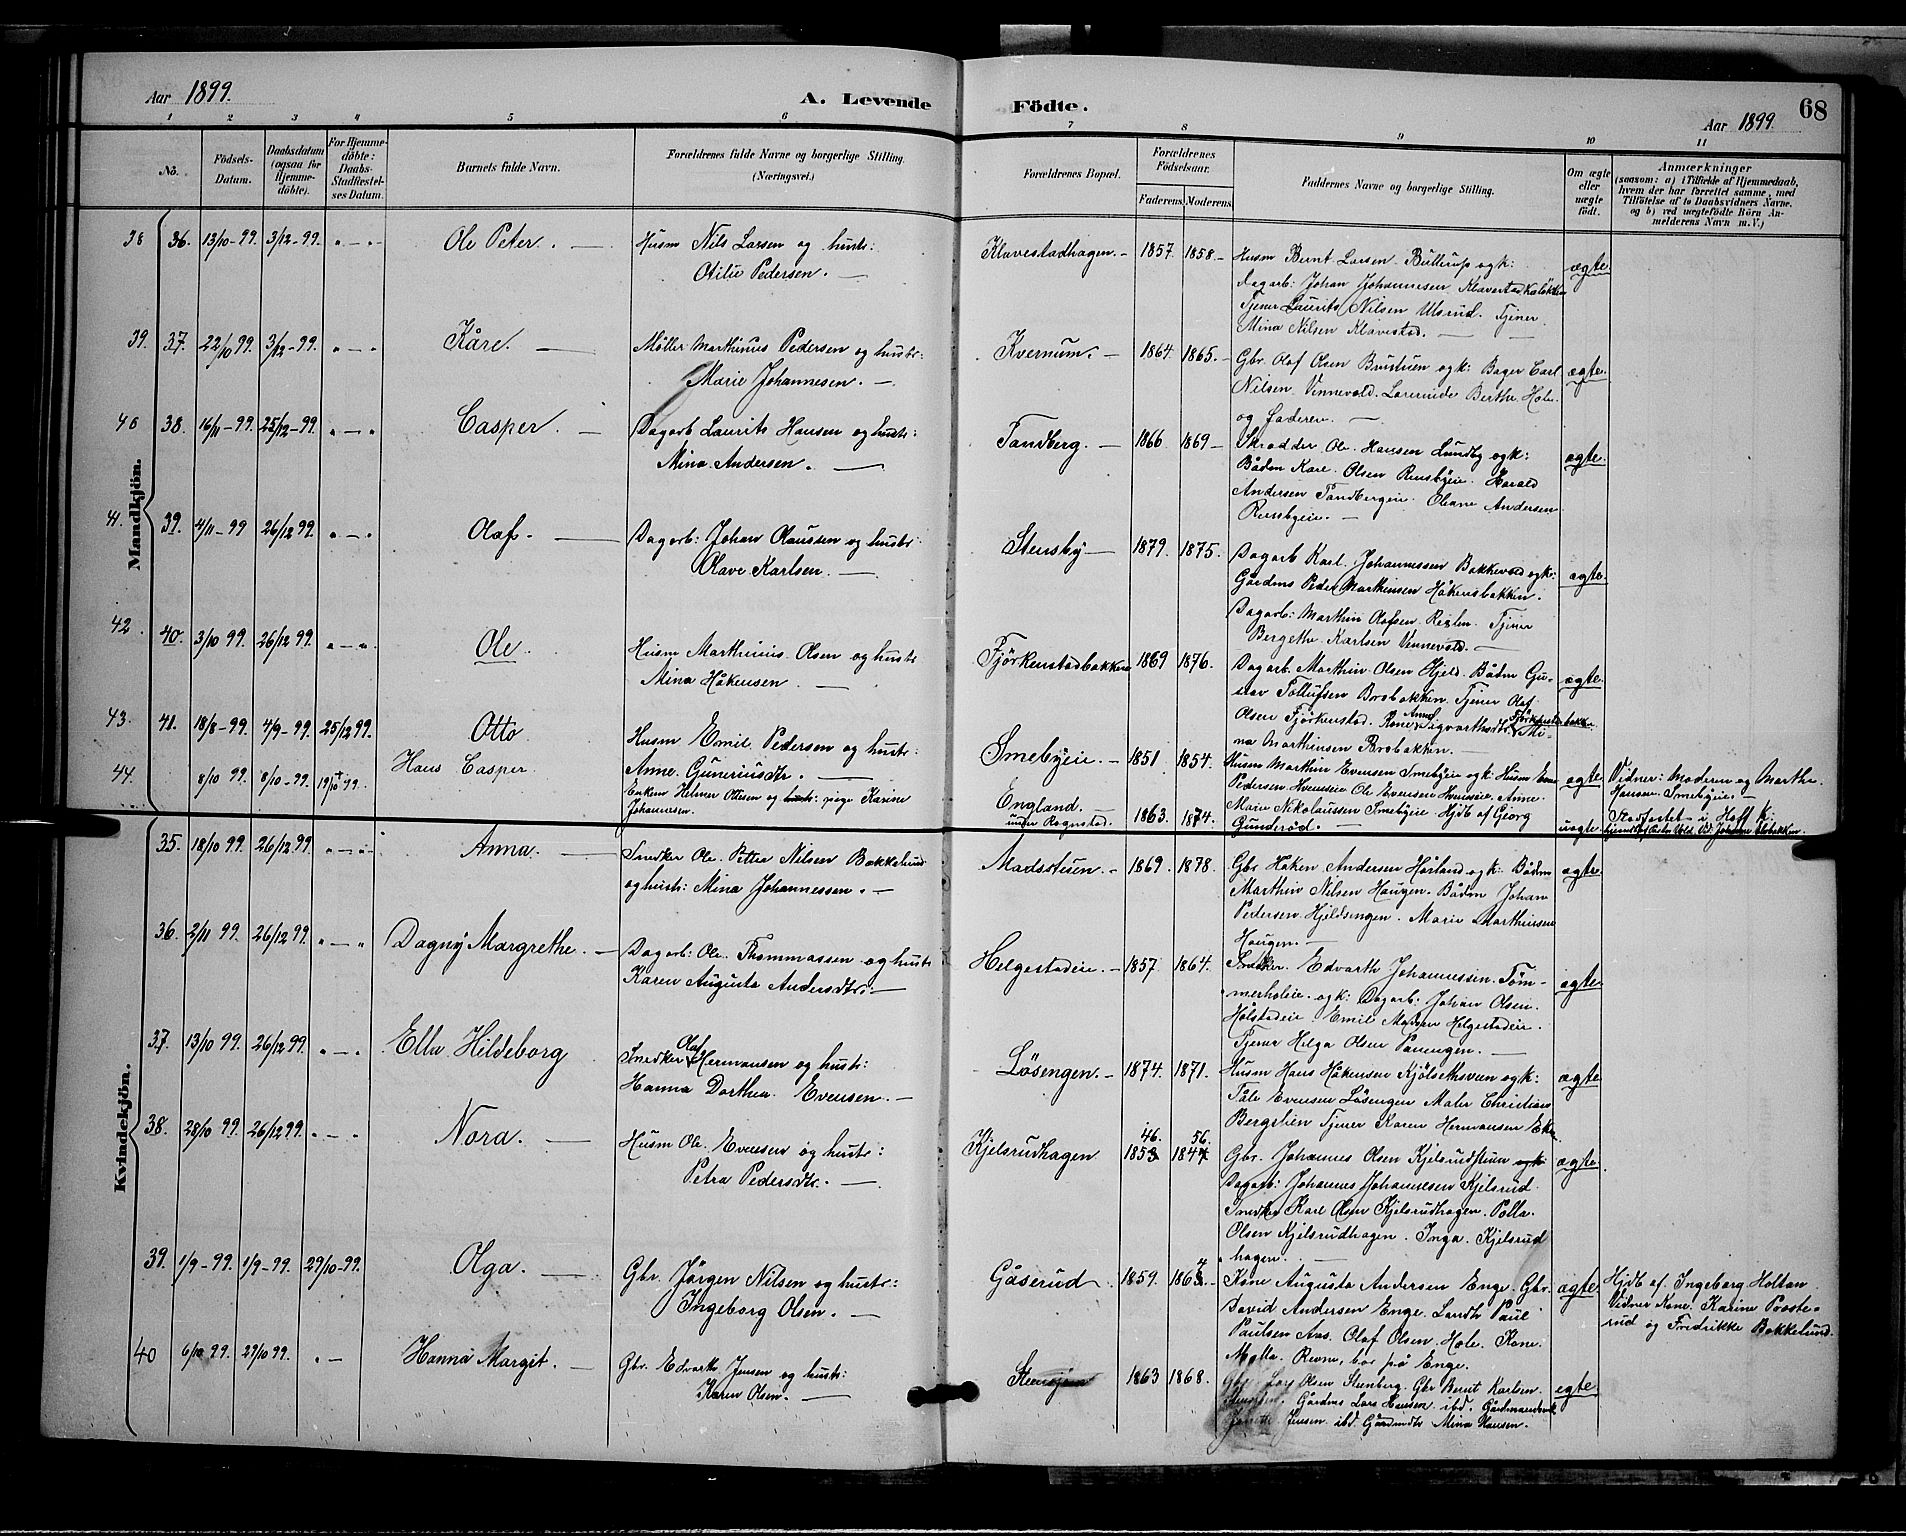 Aar 1899.
A. Levende Födte.
Aar 1899.
68
1 2 3 4 5 6 7 8 9 10 11
No.
Födsels-Datum.
Daabsdatum (ogsaa for Hjemme-döbte).
For Hjemme-döbte: Daabs-Stadfæstel-ses Datum.
Barnets fulde Navn.
Forældrenes fulde Navne og borgerlige Stilling. (Næringsvei.)
Forældrenes Bopæl.
Forældrenes Födselsaar.
Faderens. Moderens.
Faddernes Navne og borgerlige Stilling.
Om ægte eller uægte födt.
Anmærkninger
(saasom: a) i Tilfælde af Hjemmedaab, hvem der har forrettet samme, med Tilföielse af to Daabsvidners Navne, og b) ved uægtefödte Börn An-melderens Navn m.V.)
Mandkjön.
38 36. 13/10-99. 3/12-99. " - "
Ole Peter.
Husm Nils Larsen og hustr:
Otilie Pedersen.
Klavestadhagen. 1857. 1858.
Husm Bernt Larsen Bullerup og k:
Dagarb: Johan Johannesen Klavestadkalökken
Tjener Laurits Nilsen Ulsrud. Tjener
Mina Nilsen Klavestad.
ægte
39. 37. 22/10 99. 3/12-99. " - "
Kåre.
Møller Marthinus Pedersen og hustr:
Marie Johannesen.
Kvernum. 1864. 1865.
Gbr. Olaf Olsen og k: Bager Carl
Nilsen Vinnevold. Lærerinde Berthe Hole
og faderen.
ægte.
40 38. 16/11-99. 25/12-99. " - "
Casper.
Dagarb Laurits Hansen og hustr:
Mina Andersen.
Tandberg. 1866 1869
Skrædder Ole Hansen Lundby og k:
Bådm Kare Olsen Rensbyeie. Harald
Andersen Tandbergeie. Oleane Andersen
Rensbyeie.
ægte.
41. 39. 4/11-99 26/12 99. " - "
Olaf.
Dagarb: Johan Olaussen og hustr
Olave Karlsen.
Stensby 1879. 1875.
Dagarb Karl Johannessen Bakkevold og k:
Gårdms Peder Marthinsen Håkensbakken.
Dagarb: Marthin Olafsen Tjener
Bergethe Karlsen Vinnevold.
ægte.
42. 40. 3/10 99. 26/12 99. " - "
Ole.
Husm Marthinius Olsen og hustr
Mina Håkensen.
Fjörkenstadbakken 1869 1876.
Dagarb. Marthin Olsen Hjeld. Bådm Gu-
stav Tollufsen Brobakken. Tjener Olaf
Olsen Fjörkenstad. Kone Anne Sigvarthsdtr Fjörkenstadbakken Mi-
na Marthinsen Brobakken.
ægte
43. 41. 18/8-99. 4/9-99. 25/12 99.
Otto
Husm Emil Pedersen og hustr:
Anne Guneriusdtr.
Smebyeie. 1851. 1854.
Husm Marthin Evensen Smebyeie og k: Husm
Pedersen Ole Evensen Anne
Marie Nikolausen Smebyeie Hjdb af Georg
Gunderöd.
ægte
Vidner: Moderen og Marthe
Hansen Smebyeie.
44. 8/10 99. 8/10-99. 19/10 99.
Hans Casper.
Enkem Helmer Ottesen og pige Karine
Johannesen.
England.
under Rognstad. 1863. 1874.
uægte.
Stadfæstet i Hoff K.
Kvindekjön.
35. 18/10 99. 26/12 99. " - "
Anna.
Snedker Ole Petter Nilsen Bakkelund
og hustr: Mina Johannessen.
Madsstuen. 1869. 1878.
Gbr Håken Andersen Hörland og k: Bådm
Marthin Nilsen Haugen. Bådm Johan
Pedersen Hjeldsengen. Marie Marthinsen
Haugen.
ægte
36. 2/11 99. 26/12 99. " - "
Dagny Margrethe.
Dagarb: Ole Thommassen og hustr
Karen Augusta Andersdtr:
Helgestadeie. 1857. 1864.
Snedker Edvarth Johannessen Töm-
merholeie og k: Dagarb: Johan Olsen
Holstadeie. Emil Madsen Helgestadeie.
Tjener Helga Olsen
ægte.
37. 13/10 99. 26/12 99. " - "
Ella Hildeborg
Snedker Olaf Hermansen og hustr:
Hanna Dorthea Evensen.
Lösengen. 1874. 1871.
Husm Hans Håkensen Kjölsethsveen og k:
Tåle Evensen Lösengen Maler Christian
Bergelien Tjener Karen Hermansen
ægte
38. 28/10 99. 26/12 99. " - "
Nora.
Husm Ole Evensen og hustr:
Petra Pedersdtr.
Kjelsrudhagen 46. 1853 56. 1847
Gbr. Johannes Olsen Kjelsrudstuen og k
Dagarb: Johannes Johannesen Kjelsrud
Snedker Karl Olsen Kjelsrudhagen. Polla
Olsen Kjelsrudhagen. Inga Kjelsrud
hagen.
ægte
39. 1/9-99. 1/9-99. 29/10-99.
Olga.
Gbr. Jörgen Nilsen og hustr:
Ingeborg Olsen.
Gåserud. 1859. 1864
Kone Augusta Andersen Enge. Gbr.
David Andersen Enge. Landh Paul
Paulsen Aas. Olaf Olsen Hole. Kone
Matta Revne, bor på Enge.
ægte
Hjdb af Ingeborg Holtan
Vidner Kone Karine Proste-
rud og Fredrikke Bakkelund.
40 6/10 99. 29/10 99. " -
Hanna Margit.
Gbr. Edvarth Jensen og hustr:
Karen Olsen.
1863 1868.
Gbr Lars Olsen Stenberg. Gbr Bernt Karlsen
Gårdms Lars Hansen ibd. Gårdmandsenke
Jensen ibd. Gårdmdtr Mina Hansen.
egte